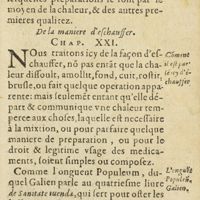 sequentes preparations se font par le
moyen de la chaleur, & des autres pre-
mieres qualitez.
De la maniere d'eschauffer.
CHAP. XXI.
NOus traitons icy de la façon d'es-
chauffer, nõ pas entãt que la cha-
leur dissoult, amollit, fond, cuit, rostit,
brusle, ou fait quelque operation appa-
rente: mais seulemẽt entant qu'elle dé-
part & communique vne chaleur tempe-
ree aux choses, laquelle est necessaire
à la mixtion, ou pour parfaire quelque
maniere de preparation, ou pour le
droit & legitime vsage des medica-
ments, soient simples ou composez.
Comme l'onguent Populeum, du-
quel Galien parle au quatriesme liure
de Sanitate tuenda, qui sert pour oster les
Cõment
il est par-
lé icy d'es-
chauffer
L'onguẽt
Populeũ.
Galien.